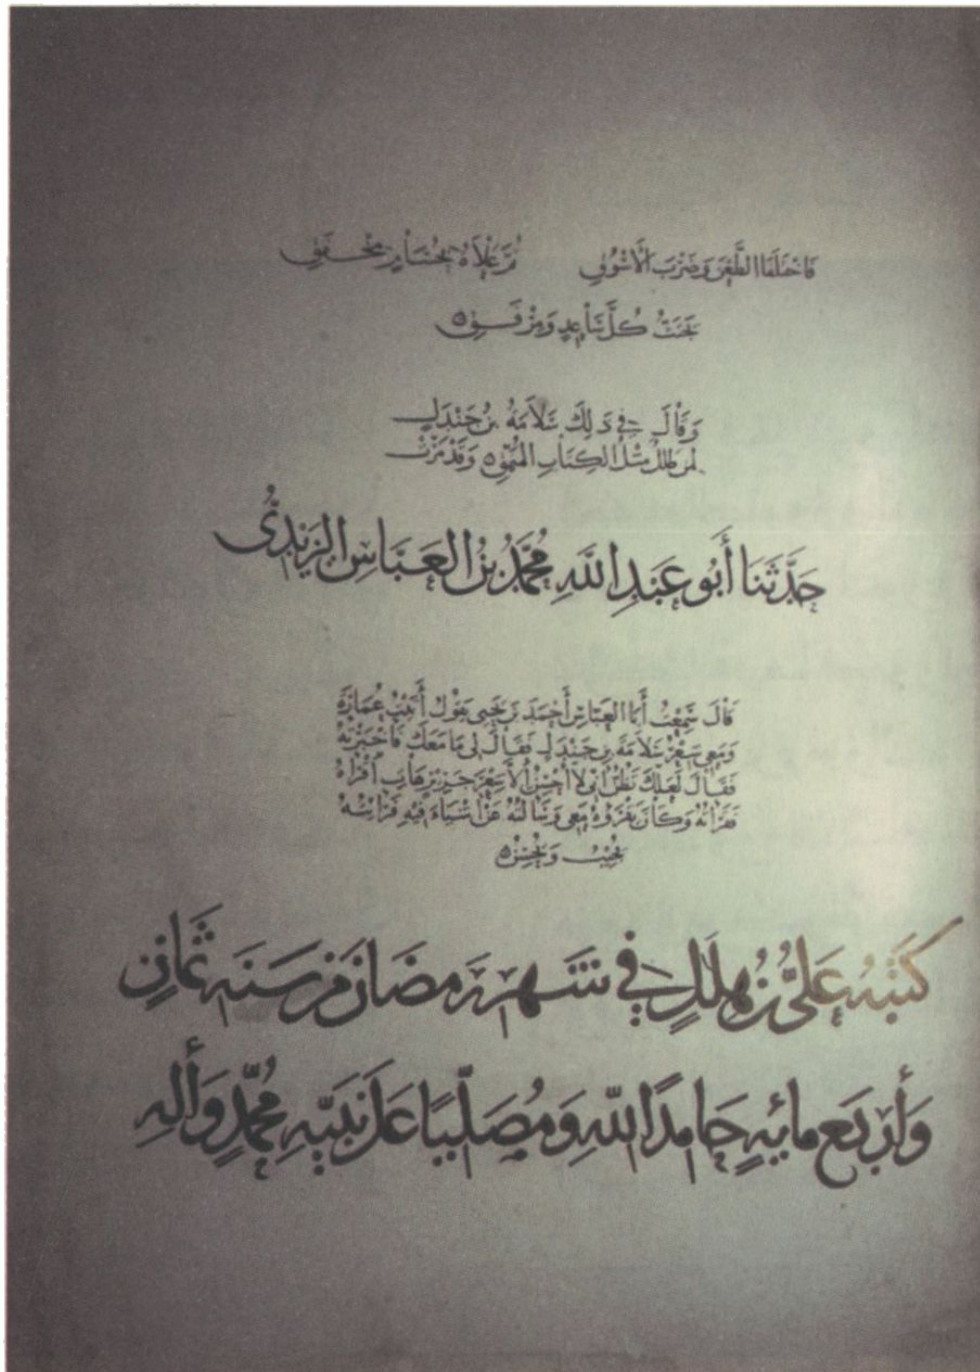 فَاخْتَلَفَا الطَّعْنَ وَضَرْبَ الأَسْوُقِ ثُمَّ عَلاَهُ بِحُسَامٍ مِخْفَقِ
تَحْتَ كُلِّ سَاعِدٍ وَمِرْفَقِ
وَقَالَ فِي ذَلِكَ سَلاَمَةُ بْنُ جَنْدَلٍ
لمن طلل مثل الكتاب المنمق وَقَدْ مَرَّتْ
حَدَّثَنَا أَبُو عَبْدِ اللَّهِ مُحَمَّدُ بْنُ العَبَّاسِ اليَزِيدِيُّ
قَالَ سَمِعْتُ أَبَا العَبَّاسِ أَحْمَدَ بْنَ يَحْيَى يَقُولُ أَتَيْتُ عُمَارَةَ
وَمَعِي شِعْرُ سَلاَمَةَ بْنِ جَنْدَلٍ فَقَالَ لِي مَا مَعَكَ فَأَخْبَرْتُهُ
فَقَالَ لَعَلَّكَ تَظُنُّ أَنِّي لاَ أُحْسِنُ إِلاَّ شِعْرَ جَرِيرٍ هَاتِ اقْرَأهُ
فَقَرَأْتُهُ وَكَانَ يَقْرَؤُهُ مَعِي وَسَأَلْتُهُ عَنْ أَشْيَاءَ فِيهِ فَرَأَيْتُهُ
يُجِيبُ وَيُحْسِنُ
كَتَبَهُ عَلِيُّ بْنُ هِلَالٍ فِي شَهْرِ رَمَضَانَ مِنْ سَنَةِ ثَمَانٍ
وَأَرْبَعِ مِائَةٍ حَامِدًا لِلَّهِ وَمُصَلِّيًا عَلَى نَبِيِّهِ مُحَمَّدٍ وَآلِهِ